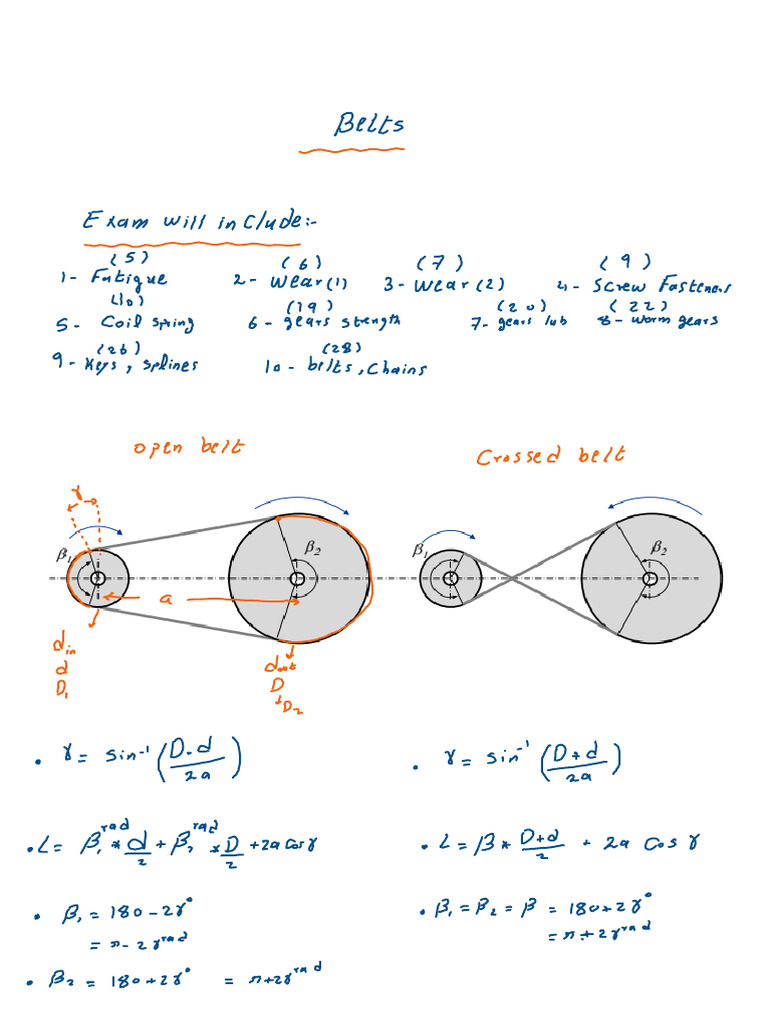 Belts
Exam will include:-
(5) (6) (7) (9)
1- Fatigue 2- Wear(1) 3- Wear(2) 4- Screw Fasteners
(10) (19) (20) (22)
5- Coil spring 6- gears strength 7- gears lub 8- worm gears
(26) (28)
9- Keys, splines 10- belts, Chains
open belt Crossed belt
γ
β1 β2 β1 β2
a
din dout
d D
D1 D2
• γ = sin-1 (D-d/2a) • γ = sin-1 (D+d/2a)
• L = β1rad * d/2 + β2rad * D/2 + 2a cosγ • L = β * D+d/2 + 2a Cos γ
• β1 = 180 - 2γ° • β1 = β2 = β = 180+2γ°
= π - 2γrad = π + 2γrad
• β2 = 180+2γ° = π+2γrad